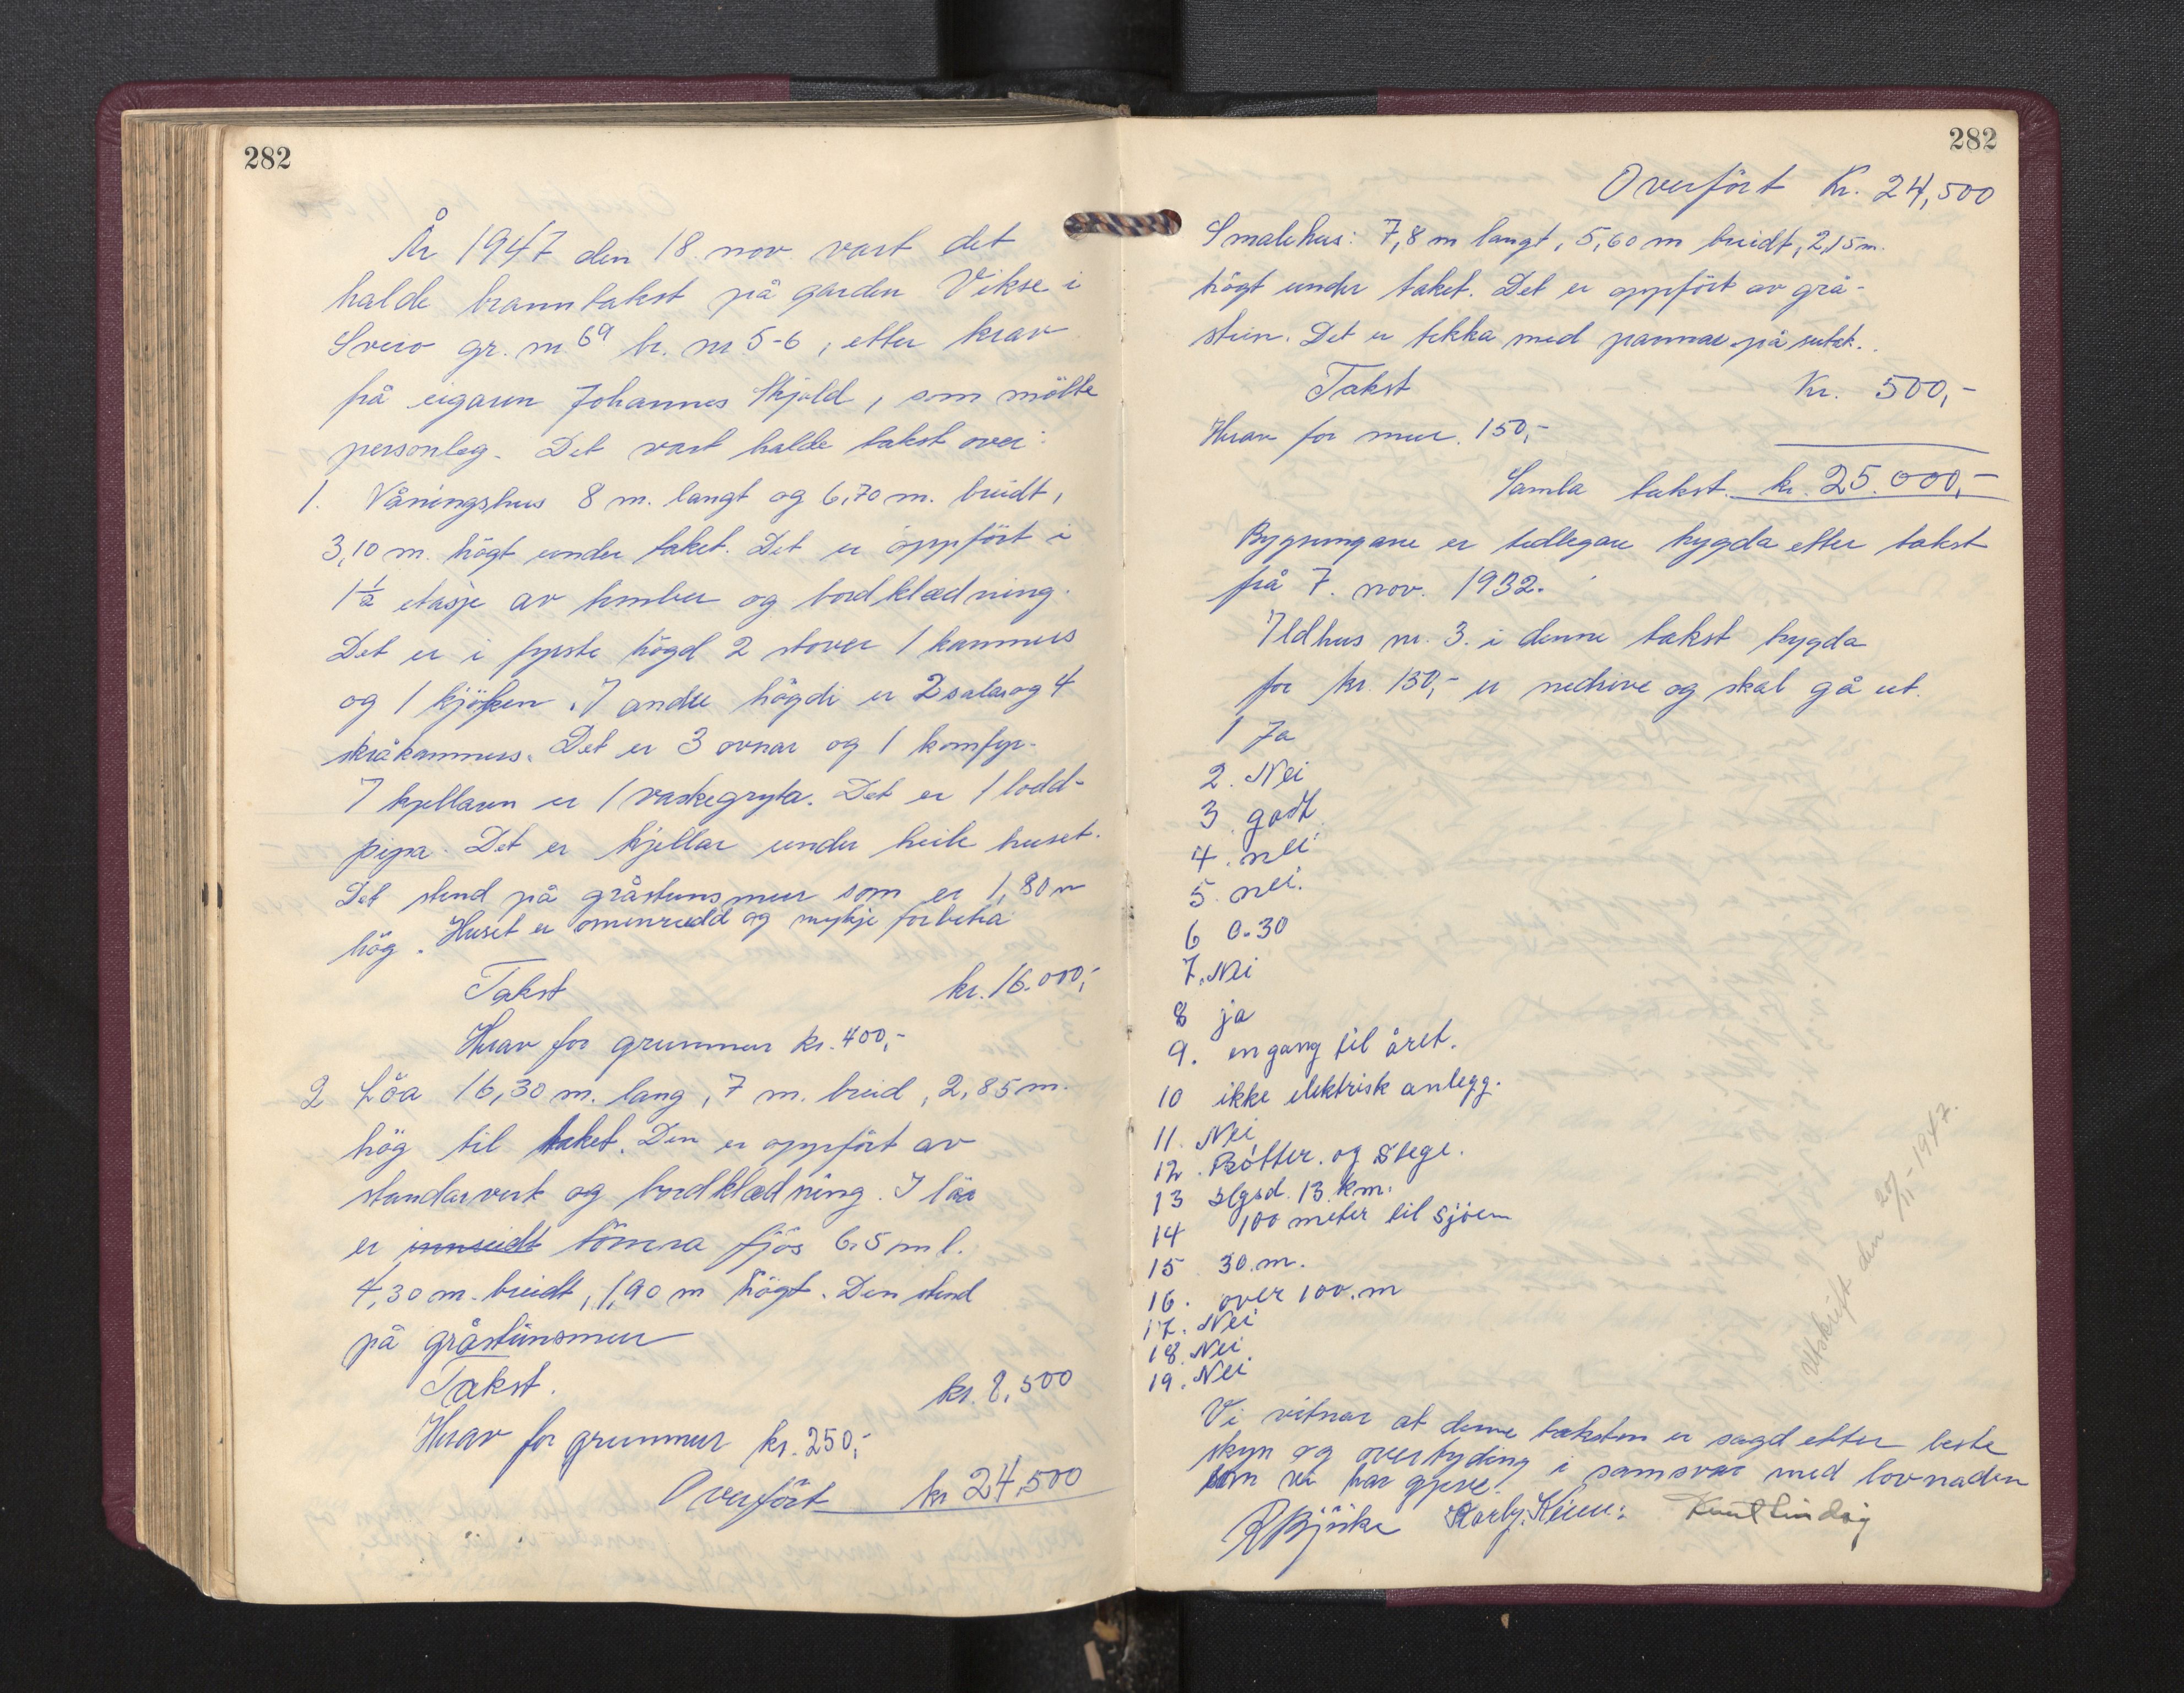 282
År 1947 den 18. nov vart det
halde branntakst på garden Vikse i
Sveio gr. nr 69 br. nr 5-6, etter krav
frå eigaren Johannes Skjold, som mötte
personleg. Det vart halde takst over:
1. Våningshus 8 m. langt og 6,70 m. breidt,
3,10 m. högt under taket. Det er oppfört i
1½ etasje av tømber og bordklædning.
Det er i fyrste högd 2 stover 1 kammers
og 1 kjöken. I andre högdi er 2 salar og 4
skråkammers. Det er 3 ovnar og 1 komfyr.
I kjellaren er 1 vaskegryta. Det er 1 lodd-
pipa. Det er kjellar under heile huset.
Det stend på gråsteinsmur som er 1,80 m
hög. Huset er omininreidd og mykje forbetra
Takst kr. 16.000,-
Herav for grunnmur kr. 400,-
2 Löa 16,30 m. lang, 7 m. breid, 2,85 m.
hög til taket. Den er oppfört av
standarverk og bordklædning. I löa
er innreidt tömra fjös 6,5 m l.
4,30 m. breidt, 1,90 m högt. Den stend
på gråsteinsmur
Takst. kr. 8,500
Herav for grunnmur kr. 250,-
Overfört kr 24,500
282
Overfört Kr. 24,500
Smalehus: 7,8 m langt, 5,60 m breidt, 2,15 m.
högt under taket. Det er oppfört av grå-
stein. Det er tekka med pannae på sutak.
Takst Kr. 500,-
Herav for mur. 150,-
Samla takst. kr. 25.000,-
Bygningane er tidlegare trygda etter takst
frå 7. nov. 1932.
Ildhus nr. 3. i denne takst trygda
for kr. 150,- er nedrive og skal gå ut.
1 Ja
2. Nei
3. godt
4. nei
5. nei.
6 0.30
7. Nei
8 ja
9. en gang til året.
10 ikke elektrisk anlegg.
11. Nei
12. Bötter. og Stege.
13 Hgsd. 13. km.
14 100 meter til Sjöen
15 30. m.
16. over 100. m
17. Nei
18. Nei
19. Nei
Utskrift den 20/11-1947.
Vi vitnar at denne taksten er sagd etter beste
skyn og overtyding i samsvar med lovnaden
som vi har gjeve.
R Bjørke Karly. Kinn: Knut Lindøy